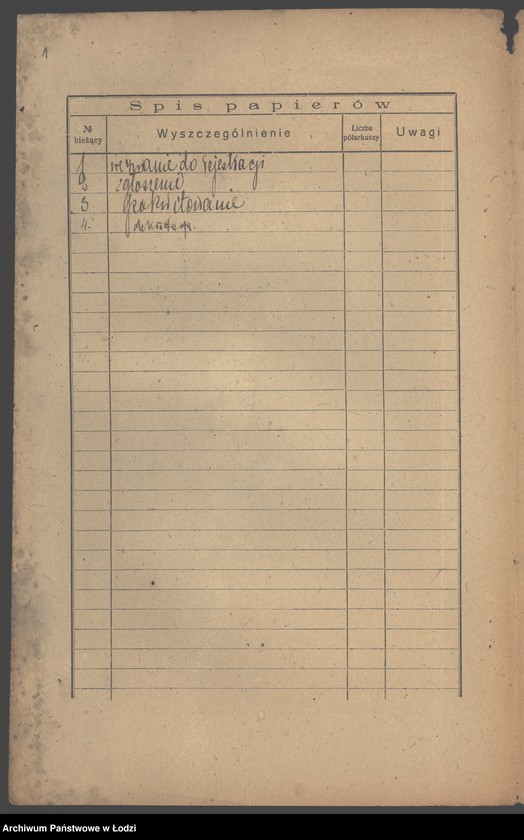 1
Spis papierów
№ bieżący Wyszczególnienie Liczba półarkuszy Uwagi
1 wezwanie do rejestracji
2 zgłoszenie
3 pokwitowanie
4.
Archiwum Państwowe w Łodzi